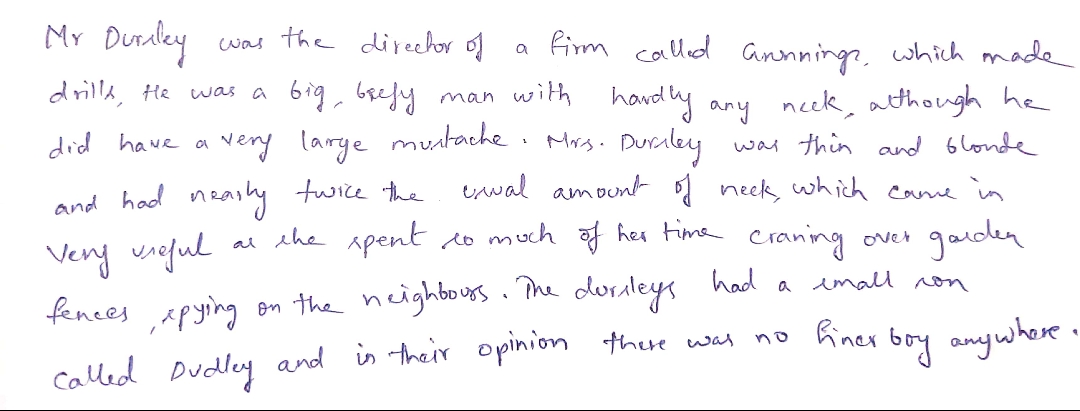 Mr Dursley was the director of a firm called Grunnings, which made
drills, He was a big, beefy man with hardly any neck, although he
did have a very large mustache. Mrs. Dursley was thin and blonde
and had nearly twice the usual amount of neck, which came in
Very useful as she spent so much of her time craning over garden
fences, spying on the neighbours. The dursleys had a small son
called Dudley and in their opinion there was no finer boy anywhere.